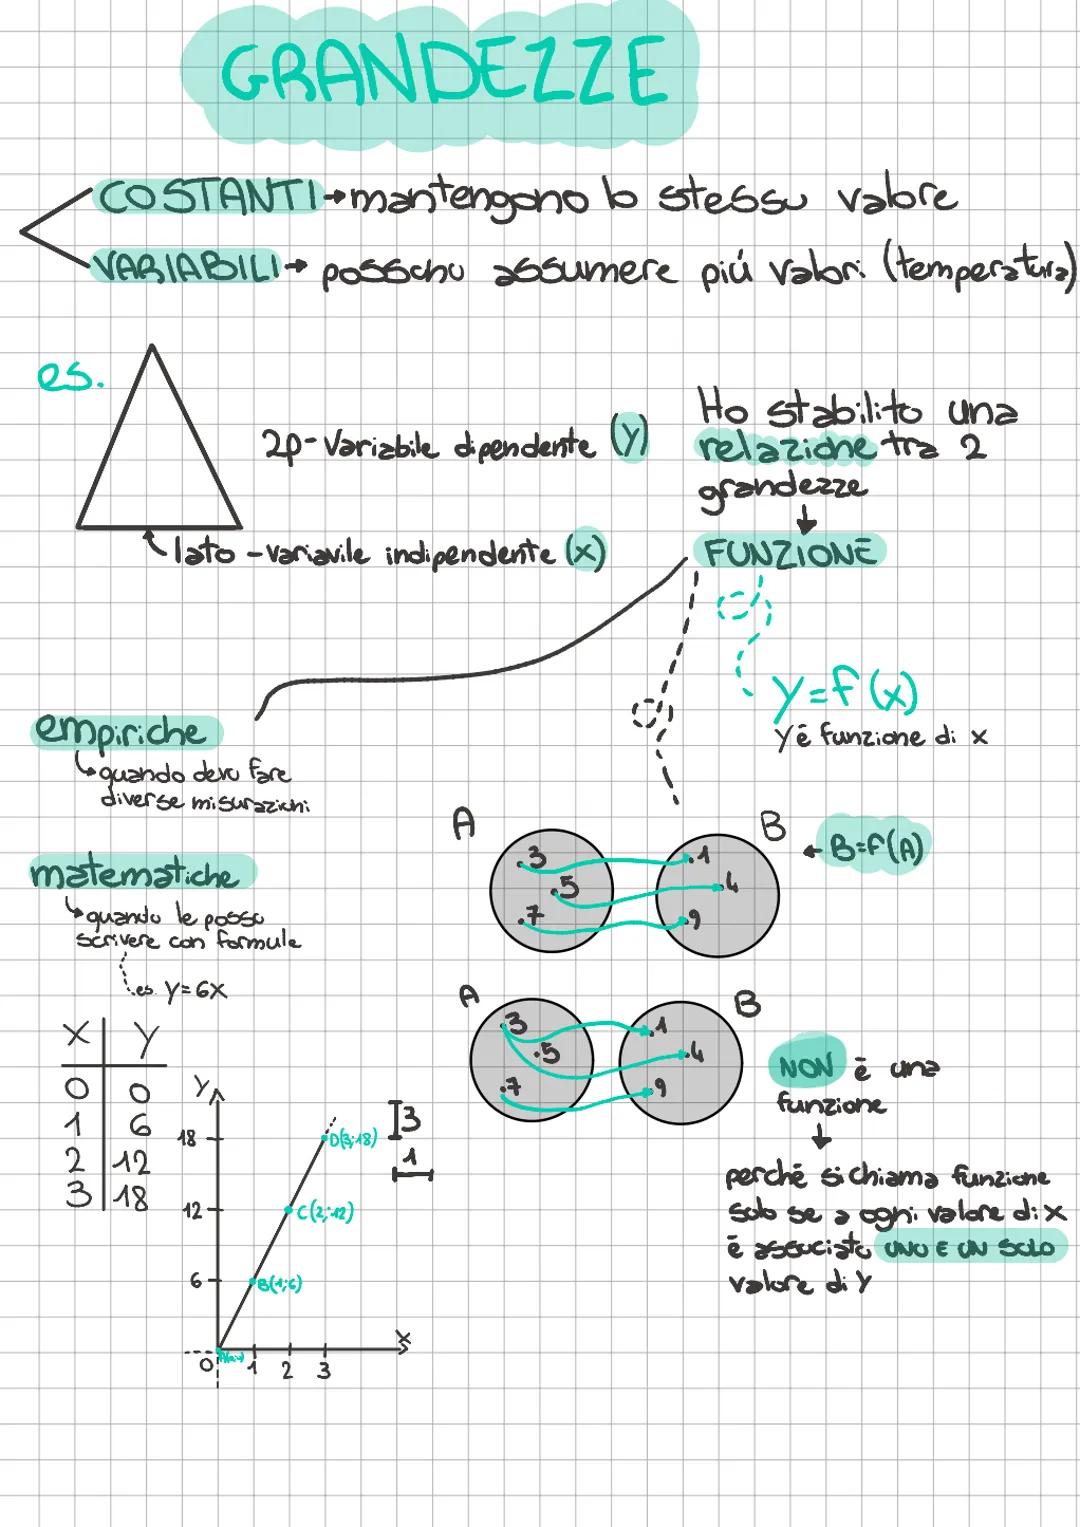 GRANDEZZE
COSTANTI→mantengono lo stesso valore
VARIABILI→ possono assumere più valori (temperatura)
es.
2p-Variabile dipendente (y)
lato -variavile indipendente (x)
Ho stabilito una
relazione tra 2
grandezze
FUNZIONE
y=f(x)
Y é funzione di x
empiriche
quando devo fare
diverse misurazioni
matematiche
quando le posso
scrivere con formule
es. y=6x
X Y
0 0
1 6
2 12
3 18
A
.3
.5
.7
B
.1
.4
.9
← B=f(A)
A
3
.5
.7
B
.1
.4
.9
NON é una
funzione
perché si chiama funzione
solo se a ogni valore di x
é associato UNO E UN SOLO
valore di Y
Y
18
12
6
0
1
2
3
X
D(3;18)
C(2;12)
B(1;6)
3
1